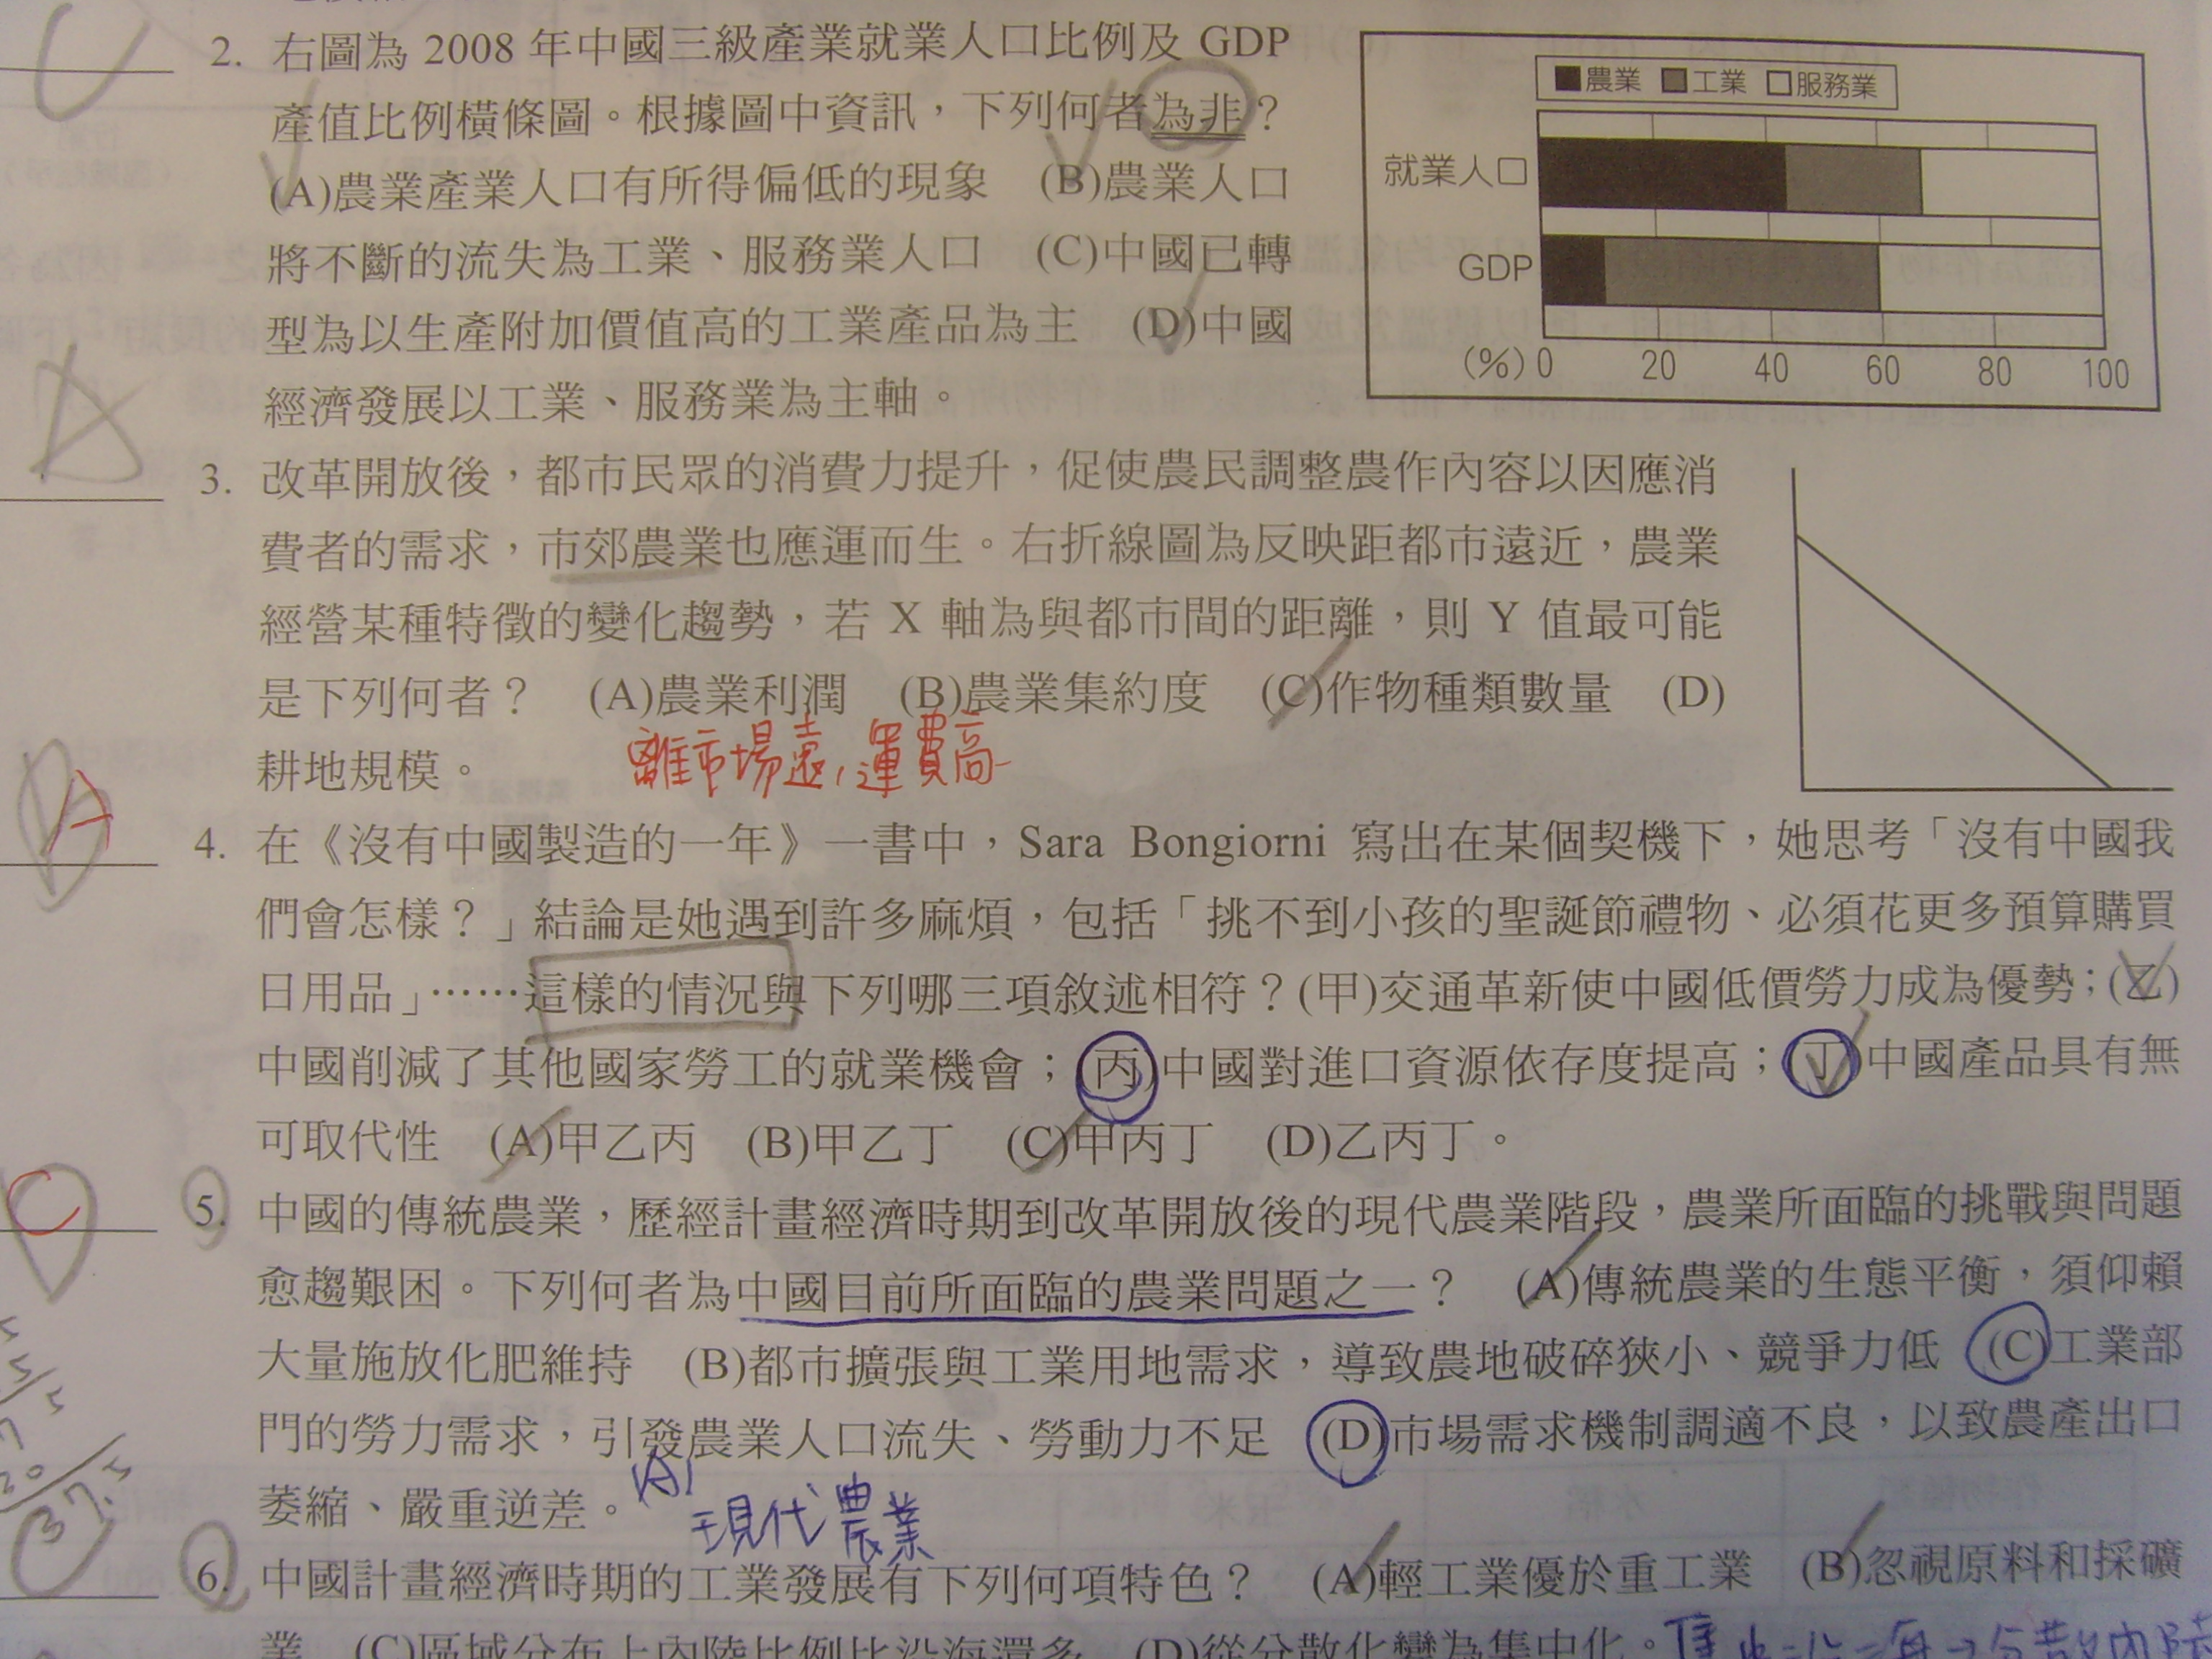 C
2. 右圖為 2008 年中國三級產業就業人口比例及 GDP
產值比例橫條圖。根據圖中資訊，下列何者為非？
(A)農業產業人口有所得偏低的現象 (B)農業人口
將不斷的流失為工業、服務業人口 (C)中國已轉
型為以生產附加價值高的工業產品為主 (D)中國
經濟發展以工業、服務業為主軸。
農業 工業 服務業
就業人口
GDP
(%) 0 20 40 60 80 100
3. 改革開放後，都市民眾的消費力提升，促使農民調整農作內容以因應消
費者的需求，市郊農業也應運而生。右折線圖為反映距都市遠近，農業
經營某種特徵的變化趨勢，若 X 軸為與都市間的距離，則 Y 值最可能
是下列何者？ (A)農業利潤 (B)農業集約度 (C)作物種類數量 (D)
耕地規模。
離市場遠，運費高
A
4. 在《沒有中國製造的一年》一書中，Sara Bongiorni 寫出在某個契機下，她思考「沒有中國我
們會怎樣？」結論是她遇到許多麻煩，包括「挑不到小孩的聖誕節禮物、必須花更多預算購買
日用品」……這樣的情況與下列哪三項敘述相符？(甲)交通革新使中國低價勞力成為優勢；(乙)
中國削減了其他國家勞工的就業機會；(丙)中國對進口資源依存度提高；(丁)中國產品具有無
可取代性 (A)甲乙丙 (B)甲乙丁 (C)甲丙丁 (D)乙丙丁。
C
5. 中國的傳統農業，歷經計畫經濟時期到改革開放後的現代農業階段，農業所面臨的挑戰與問題
愈趨艱困。下列何者為中國目前所面臨的農業問題之一？ (A)傳統農業的生態平衡，須仰賴
大量施放化肥維持 (B)都市擴張與工業用地需求，導致農地破碎狹小、競爭力低 (C)工業部
門的勞力需求，引發農業人口流失、勞動力不足 (D)市場需求機制調適不良，以致農產出口
萎縮、嚴重逆差。
(A)
現代農業
37.5
6. 中國計畫經濟時期的工業發展有下列何項特色？ (A)輕工業優於重工業 (B)忽視原料和採礦
業 (C)區域分布上內陸比例比沿海還多 (D)從分散化變為集中化。